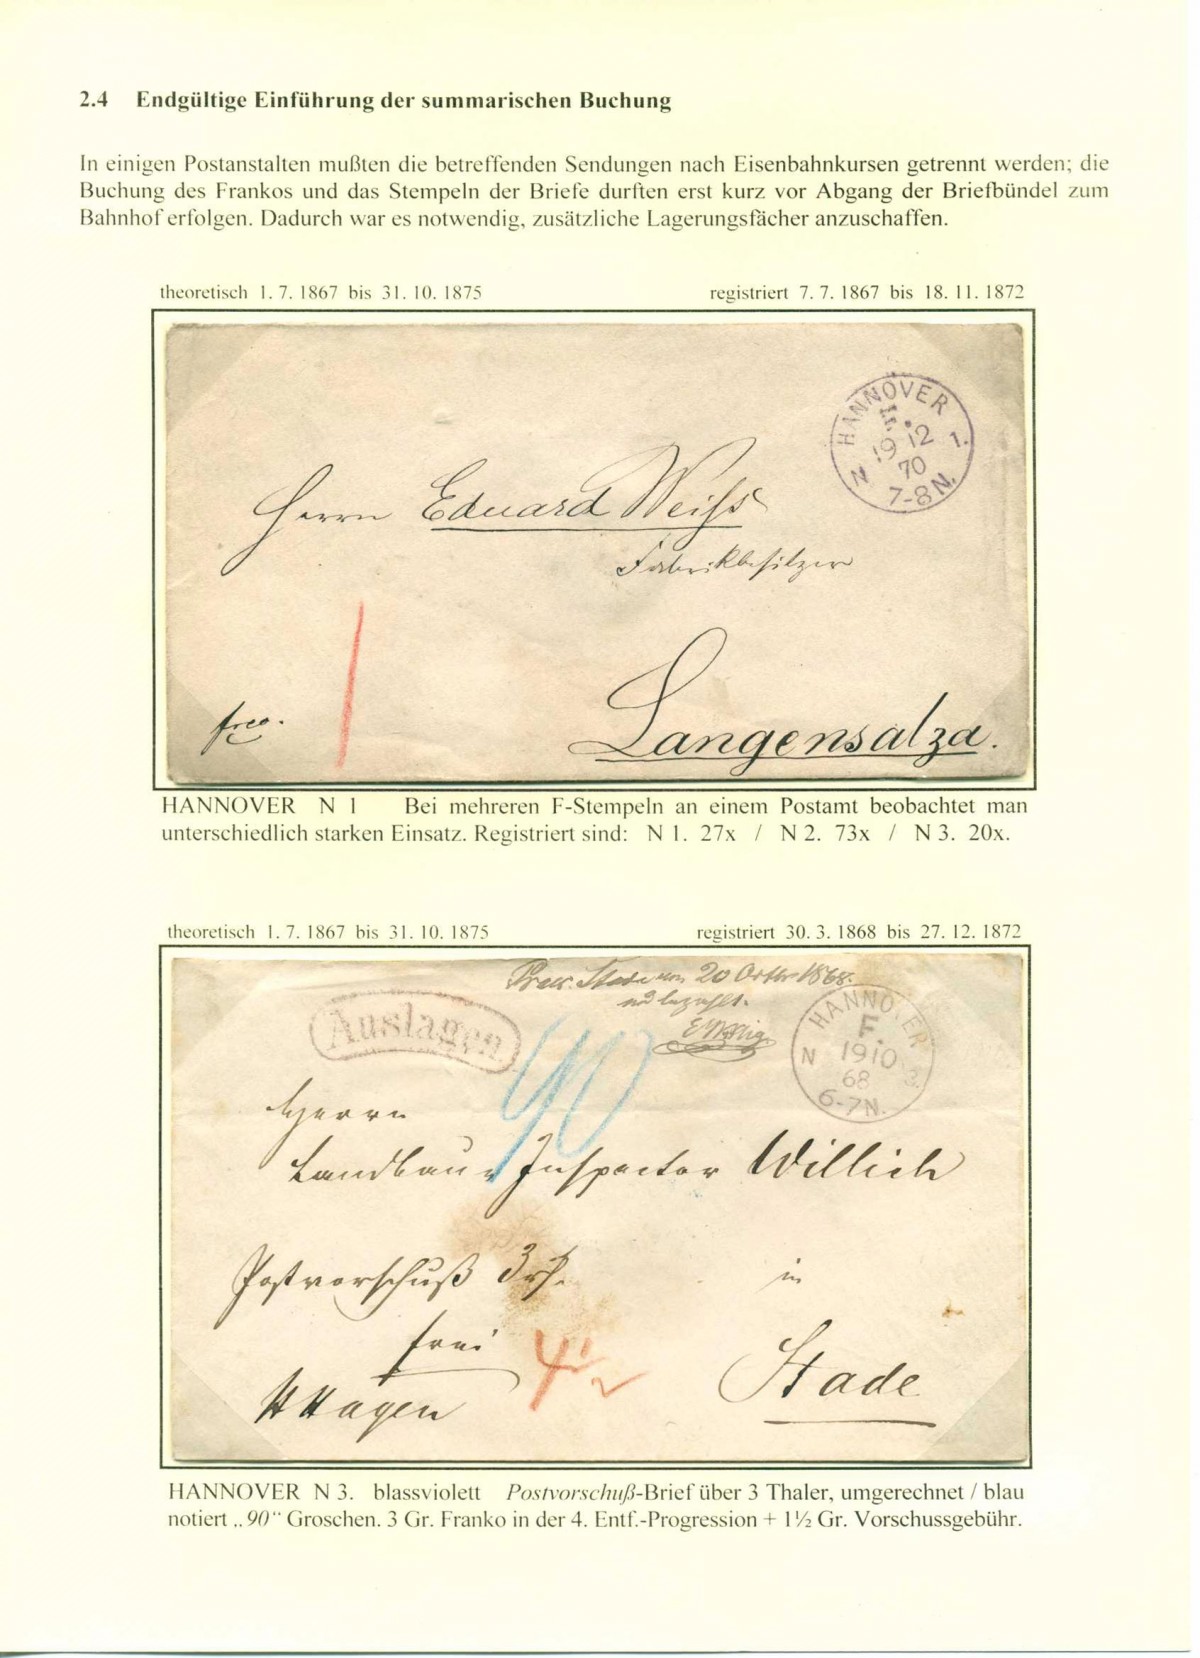 2.4 Endgültige Einführung der summarischen Buchung
In einigen Postanstalten mußten die betreffenden Sendungen nach Eisenbahnkursen getrennt werden; die
Buchung des Frankos und das Stempeln der Briefe durften erst kurz vor Abgang der Briefbündel zum
Bahnhof erfolgen. Dadurch war es notwendig, zusätzliche Lagerungsfächer anzuschaffen.
theoretisch 1. 7. 1867 bis 31. 10. 1875 registriert 7. 7. 1867 bis 18. 11. 1872
HANNOVER
fr.
19 12
N 1.
70
7-8N.
Herrn Eduard Weiss
Fabrikbesitzer
1
frco.
Langensalza.
HANNOVER N 1 Bei mehreren F-Stempeln an einem Postamt beobachtet man
unterschiedlich starken Einsatz. Registriert sind: N 1. 27x / N 2. 73x / N 3. 20x.
theoretisch 1. 7. 1867 bis 31. 10. 1875 registriert 30. 3. 1868 bis 27. 12. 1872
20 1868.
Auslagen
90
HANNOVER
F.
N 19 10 3.
68
6-7N.
Herrn
Landbau Inspector Willich
Postvorschuß 3
in
frei
4 1/2
Stade
HHagen
HANNOVER N 3. blassviolett Postvorschuß-Brief über 3 Thaler, umgerechnet / blau
notiert „90“ Groschen. 3 Gr. Franko in der 4. Entf.-Progression + 1½ Gr. Vorschussgebühr.